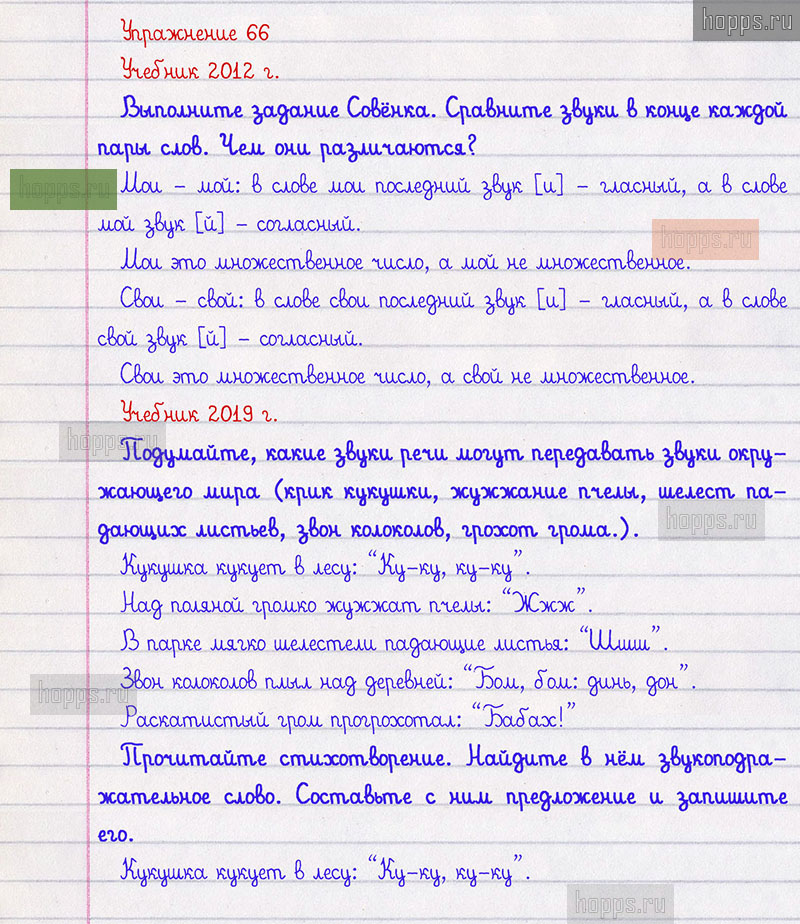 hopps.ru
Упражнение 66
Учебник 2012 г.
Выполните задание Совёнка. Сравните звуки в конце каждой
пары слов. Чем они различаются?
hopps.ru
Мои – мой: в слове мои последний звук [и] – гласный, а в слове
мой звук [й] – согласный.
hopps.ru
Мои это множественное число, а мой не множественное.
Свои – свой: в слове свои последний звук [и] – гласный, а в слове
свой звук [й] – согласный.
Свои это множественное число, а свой не множественное.
Учебник 2019 г.
hopps.ru
Подумайте, какие звуки речи могут передавать звуки окру-
жающего мира (крик кукушки, жужжание пчелы, шелест па-
дающих листьев, звон колоколов, грохот грома.).
hopps.ru
Кукушка кукует в лесу: “Ку-ку, ку-ку”.
Над поляной громко жужжат пчелы: “Жжж”.
В парке мягко шелестели падающие листья: “Шшш”.
Звон колоколов плыл над деревней: “Бом, бом: динь, дон”.
hopps.ru
Раскатистый гром прогрохотал: “Бабах!”
Прочитайте стихотворение. Найдите в нём звукоподра-
жательное слово. Составьте с ним предложение и запишите
его.
Кукушка кукует в лесу: “Ку-ку, ку-ку”.
hopps.ru